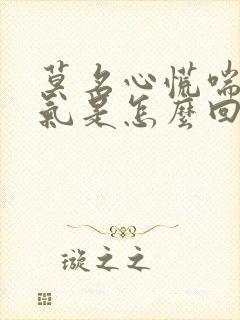 莫名心慌喘
氣是怎麼回
璇之之